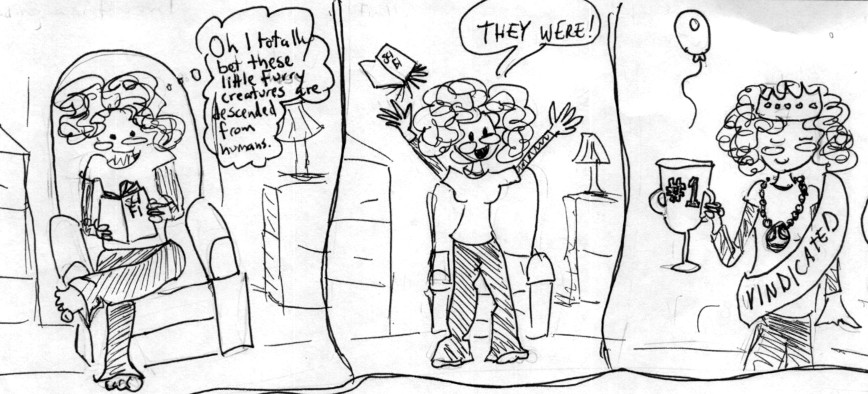 Oh I totally
bet these
little furry
creatures are
descended
from
humans.
SCI
FI
THEY WERE!
SCI
FI
#1
VINDICATED